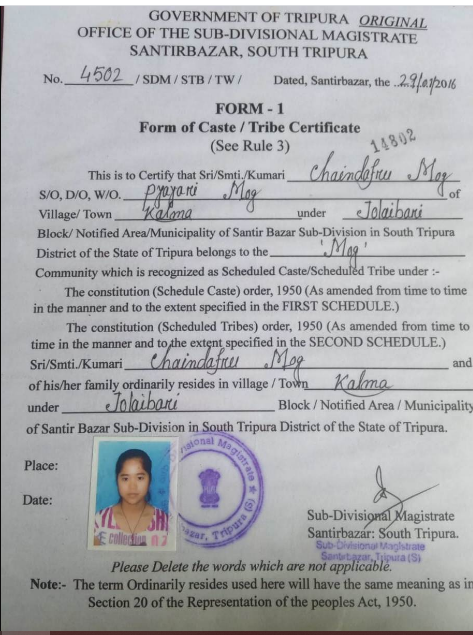 GOVERNMENT OF TRIPURA ORIGINAL
OFFICE OF THE SUB-DIVISIONAL MAGISTRATE
SANTIRBAZAR, SOUTH TRIPURA
No. 4502 / SDM / STB / TW / Dated, Santirbazar, the ..29/07/2016
FORM - 1
Form of Caste / Tribe Certificate
(See Rule 3)
14802
This is to Certify that Sri/Smti./Kumari Chaindafru Mog
S/O, D/O, W/O. Mog of
Village/ Town Kalma under Jolaibari
Block/ Notified Area/Municipality of Santir Bazar Sub-Division in South Tripura
District of the State of Tripura belongs to the 'Mog'
Community which is recognized as Scheduled Caste/Scheduled Tribe under :-
The constitution (Schedule Caste) order, 1950 (As amended from time to time
in the manner and to the extent specified in the FIRST SCHEDULE.)
The constitution (Scheduled Tribes) order, 1950 (As amended from time to
time in the manner and to the extent specified in the SECOND SCHEDULE.)
Sri/Smti./Kumari Chaindafru Mog and
of his/her family ordinarily resides in village / Town Kalma
under Jolaibari Block / Notified Area / Municipality
of Santir Bazar Sub-Division in South Tripura District of the State of Tripura.
Place:
Date:
Sub-Divisional Magistrate
Santirbazar: South Tripura.
Sub-Divisional Magistrate
Santirbazar, Tripura (S)
Please Delete the words which are not applicable.
Note:- The term Ordinarily resides used here will have the same meaning as in
Section 20 of the Representation of the peoples Act, 1950.